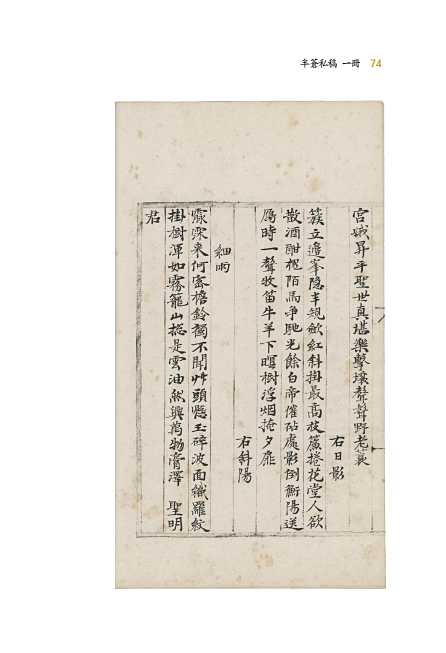 半蒼私稿 一冊 74
宮娥昇平聖世真堪樂擊壤聲聲野老裳
右日影
簇立遙峯隱半規斂紅斜掛最高枝簾捲花堂人欲
散酒酣槐陌馬爭馳光餘白帝催砧處影倒衡陽送
鴈時一聲牧笛牛羊下暝樹浮烟掩夕扉
右斜陽
細雨
霢霂来何密檐鈴獨不聞艸頭懸玉碎波面織羅紋
掛樹渾如霧籠山摠是雲油然興萬物膏澤 聖明
君